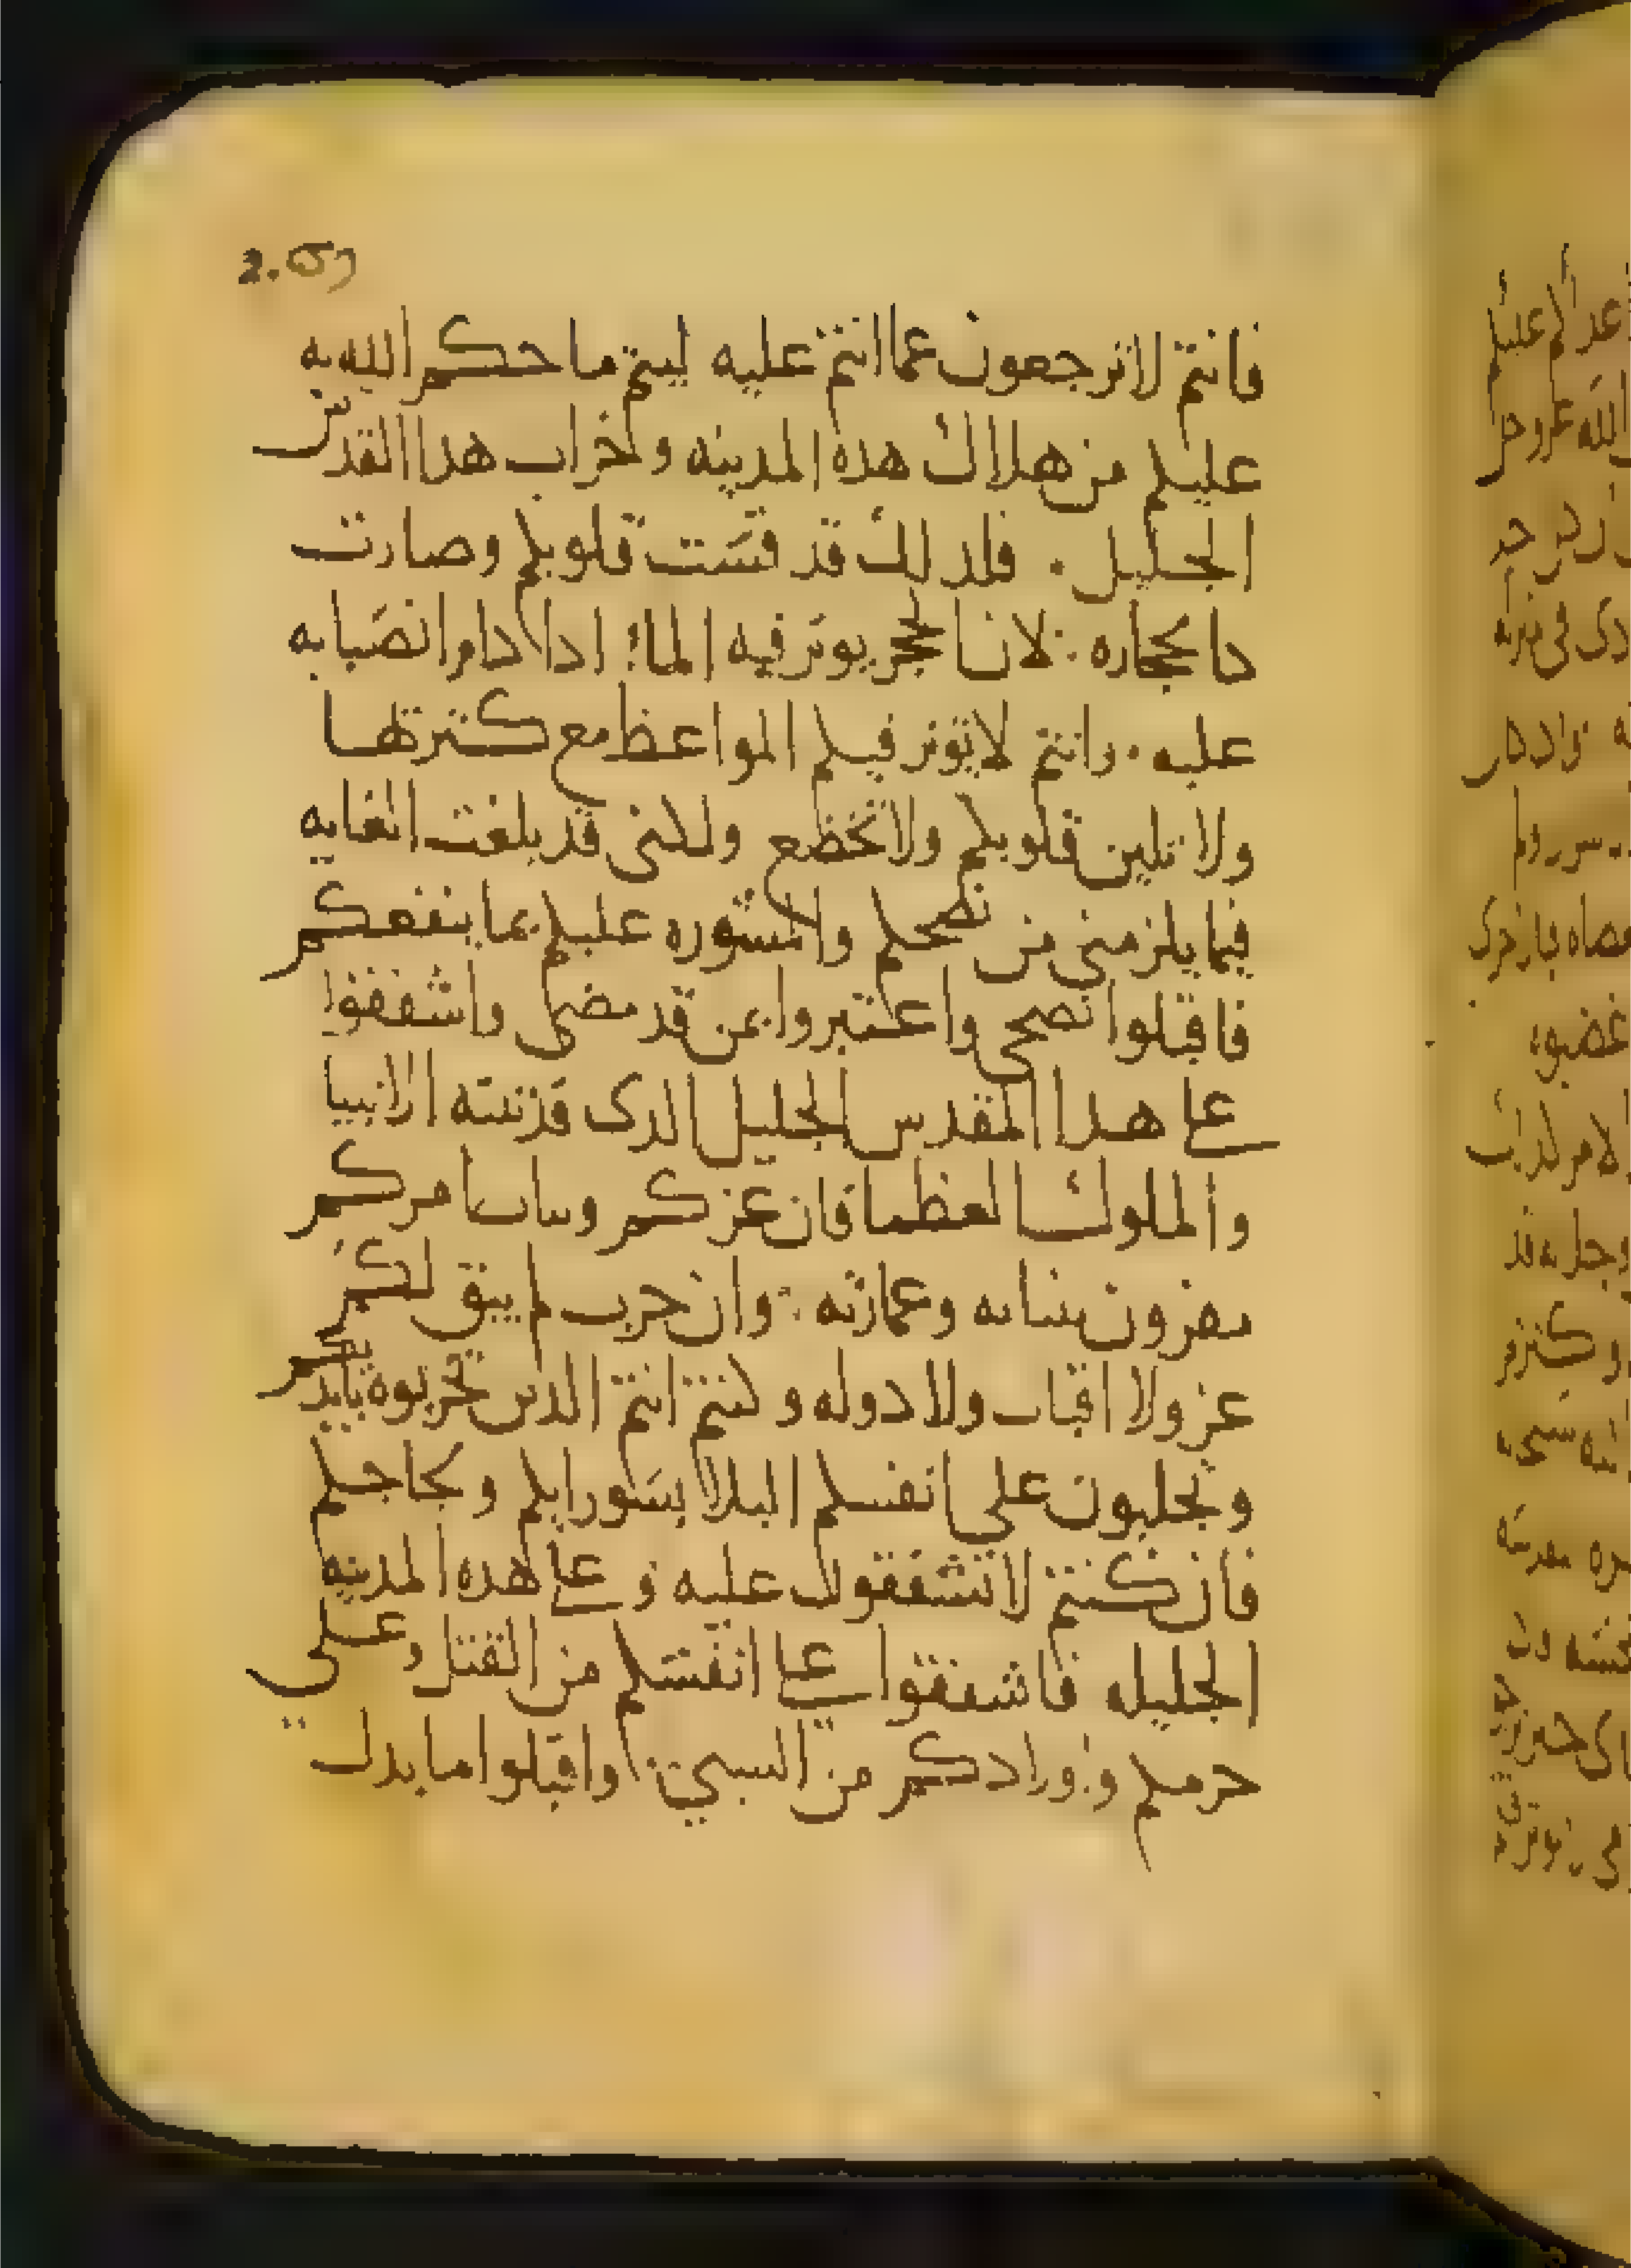 فانتم لا ترجعون عما انتم عليه ليتم ما حكم الله به
عليكم من هلاك هذه المدينه وخراب هدا القدس
الجليل . فلدلك قد قست قلوبكم وصارت
كالحجاره . لان الحجر يوثر فيه الما اذا دام انصبابه
عليه . وانتم لا توثر فيكم المواعظ مع كثرتها
ولا تلين قلوبكم ولا تخضع ولكنى قد بلغت الغايه
فيما يلزمنى من نصحكم والمشوره عليكم بما ينفعكم
فاقبلوا نصحى واعتبروا بمن قد مضى واشفقوا
على هدا المقدس الجليل الدى قد بنته الانبيا
والملوك العظما فان عزكم وثبات امركم
مقرون بثباته وعمارته . وان خرب لم يبق لكم
عز ولا اقبال ولا دوله وكنتم انتم الدين تخربوه بايديكم
وتجلبون على انفسكم البلا بسو رايكم ولجاجكم
فان كنتم لا تشفقون عليه وعلى هده المدينه
الجليله فاشفقوا على انفسكم من القتل وعلي
حرمكم واولادكم من السبي . واقبلوا ما بدل